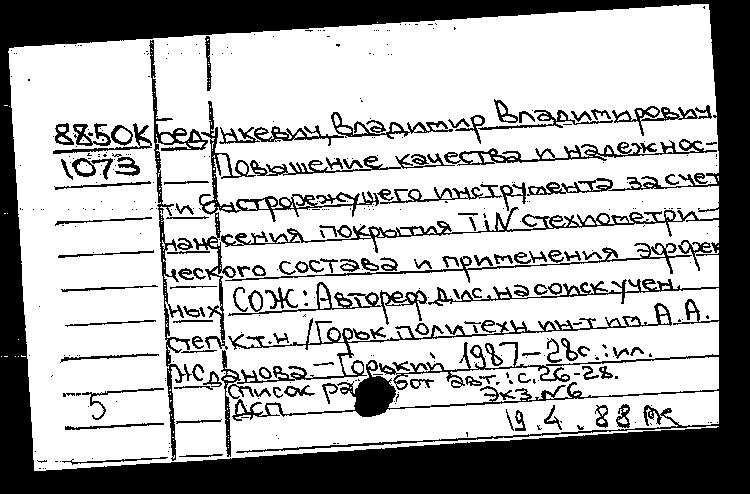 88-50К Бедункевич, Владимир Владимирович.
1073 Повышение качества и надежнос-
ти быстрорежущего инструмента за счет
нанесения покрытия TiN стехиометри-
ческого состава и применения эффек
ных СОЖ: Автореф. дис. на соиск. учен.
степ. к.т.н. / Горьк. политехн. ин-т им. А.А.
Жданова. - Горький 1987 - 28с.: ил.
Список работ авт.: с. 26-28.
5 ДСП Экз. №6
19.4.88